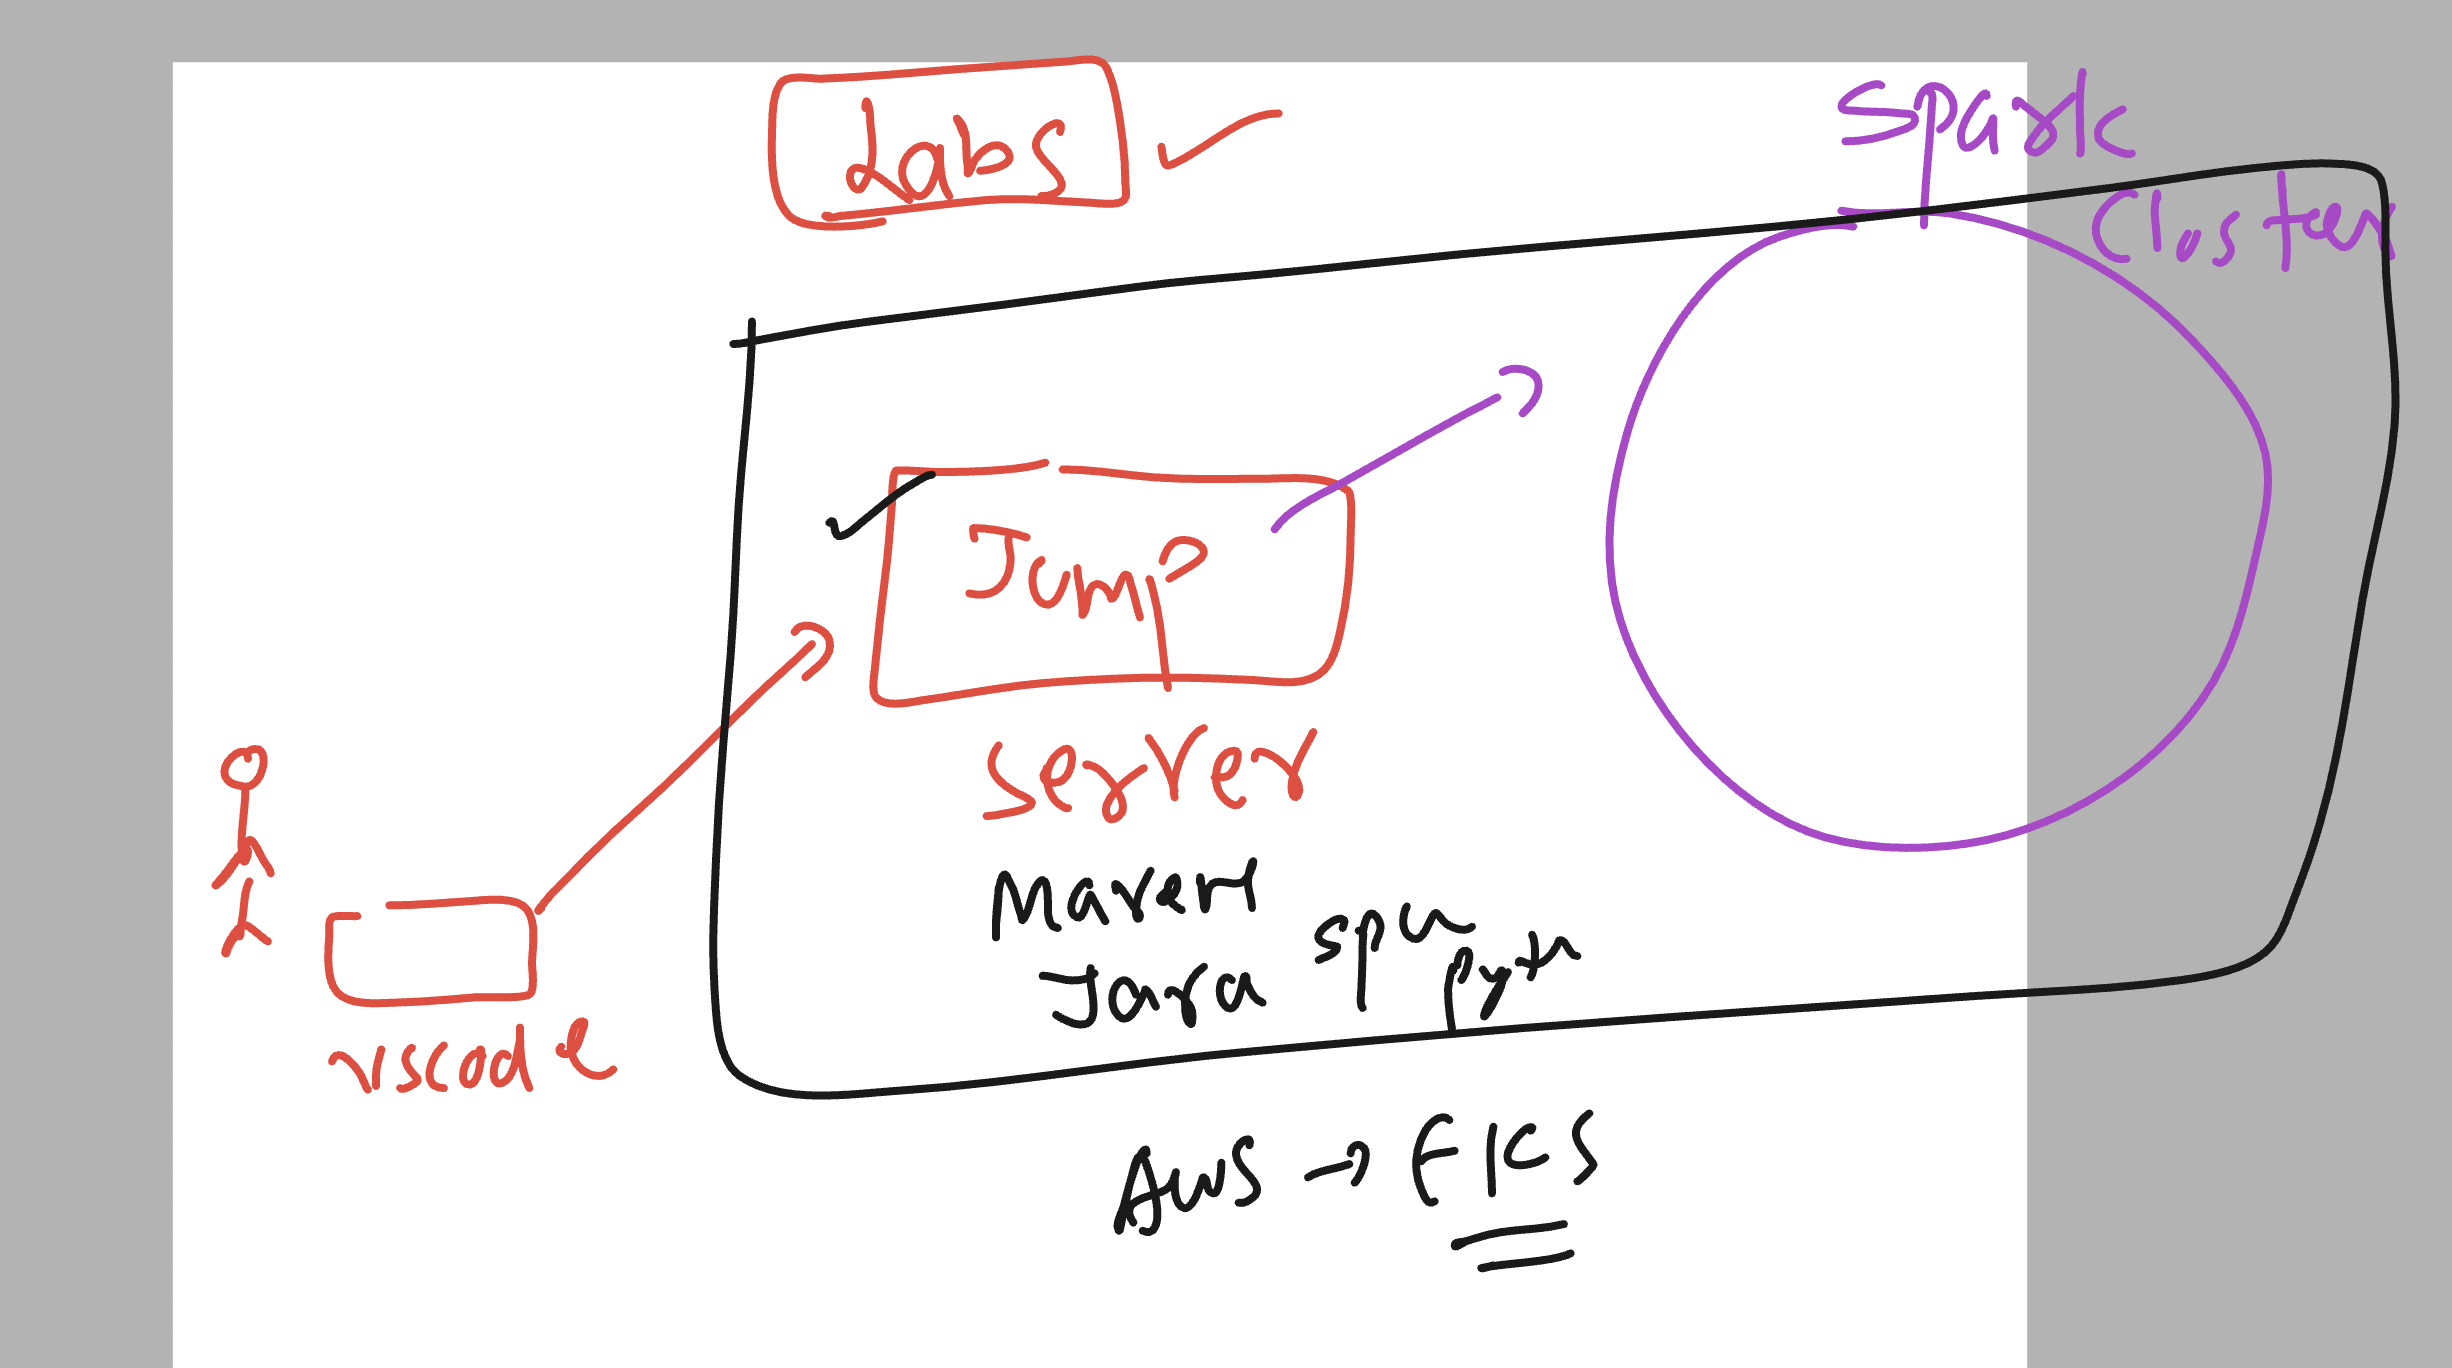 Labs
Spark
Cluster
Jump
Server
Maven
Java
vscode
AWS →